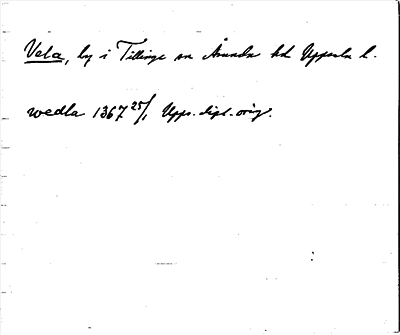 Vela, by i Tillinge sn Åsunda hd Uppsala l.
wedla 1367 25/1 Upps. dipl. orig.